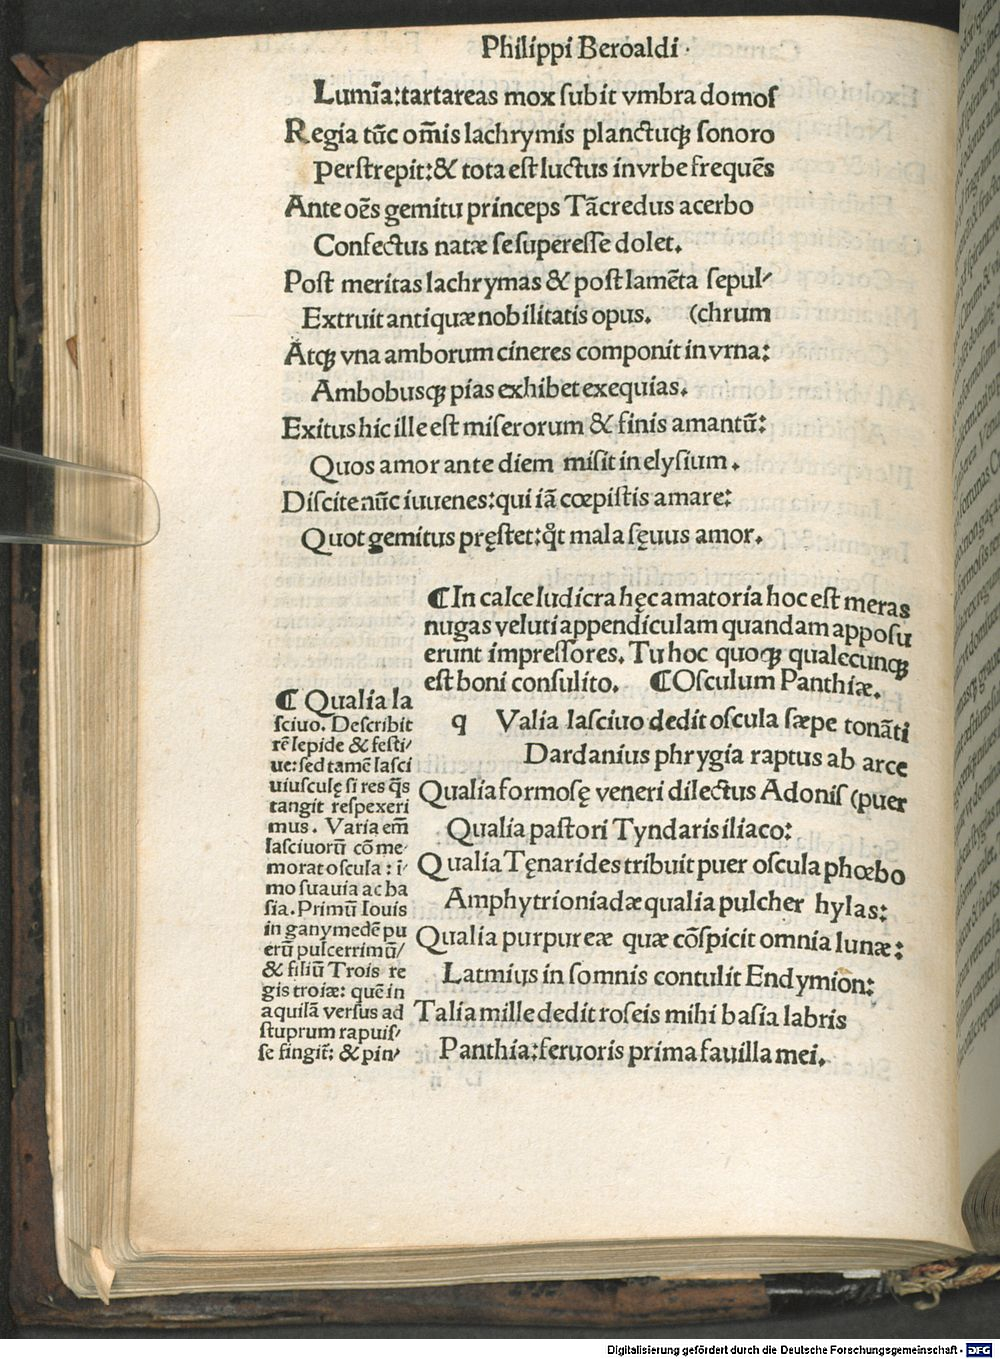 Philippi Beroaldi ·
Lumīa: tartareas mox ſubit vmbra domoſ
Regia tūc om̄is lachrymis planctuqꝫ ſonoro
Perſtrepit: & tota eſt luctus in vrbe frequēs
Ante oēs gemitu princeps Tācredus acerbo
Confectus natæ ſe ſupereſſe dolet.
Poſt meritas lachrymas & poſt lamēta ſepul⸗
Extruit antiquæ nobilitatis opus. (chrum
Atqꝫ vna amborum cineres componit in vrna:
Ambobusqꝫ pias exhibet exequias.
Exitus hic ille eſt miſerorum & finis amantū:
Quos amor ante diem miſit in elyſium.
Diſcite nūc iuuenes: qui iā cœpiſtis amare:
Quot gemitus pręſtet: qͦt mala ſęuus amor.
¶ In calce ludicra hęc amatoria hoc eſt meras
nugas veluti appendiculam quandam appoſu
erunt impreſſores. Tu hoc quoqꝫ qualecunqꝫ
eſt boni conſulito. ¶ Oſculum Panthiæ.
q Valia laſciuo dedit oſcula ſæpe tonāti
Dardanius phrygia raptus ab arce
Qualia formoſę veneri dilectus Adoniſ (puer
Qualia paſtori Tyndaris iliaco:
Qualia Tęnarides tribuit puer oſcula phœbo
Amphytrioniadæ qualia pulcher hylas:
Qualia purpureæ quæ cōſpicit omnia lunæ:
Latmius in ſomnis contulit Endymion:
Talia mille dedit roſeis mihi baſia labris
Panthia: feruoris prima fauilla mei.
¶ Qualia la
ſciuo. Deſcribit
rē lepide & feſti⸗
ue: ſed tamē laſci
uiuſculę ſi res q̄s
tangit reſpexeri
mus. Varia em̄
laſciuorū cō me⸗
morat oſcula: ī⸗
mo ſuauia ac ba
ſia. Primū Iouis
in ganymedē pu
erū pulcerrimū/
& filiū Trois re
gis troiæ: quē in
aquilā verſus ad
ſtuprum rapuiſ⸗
ſe fingit̄: & pin⸗
Digitalisierung gefördert durch die Deutsche Forschungsgemeinschaft - DFG